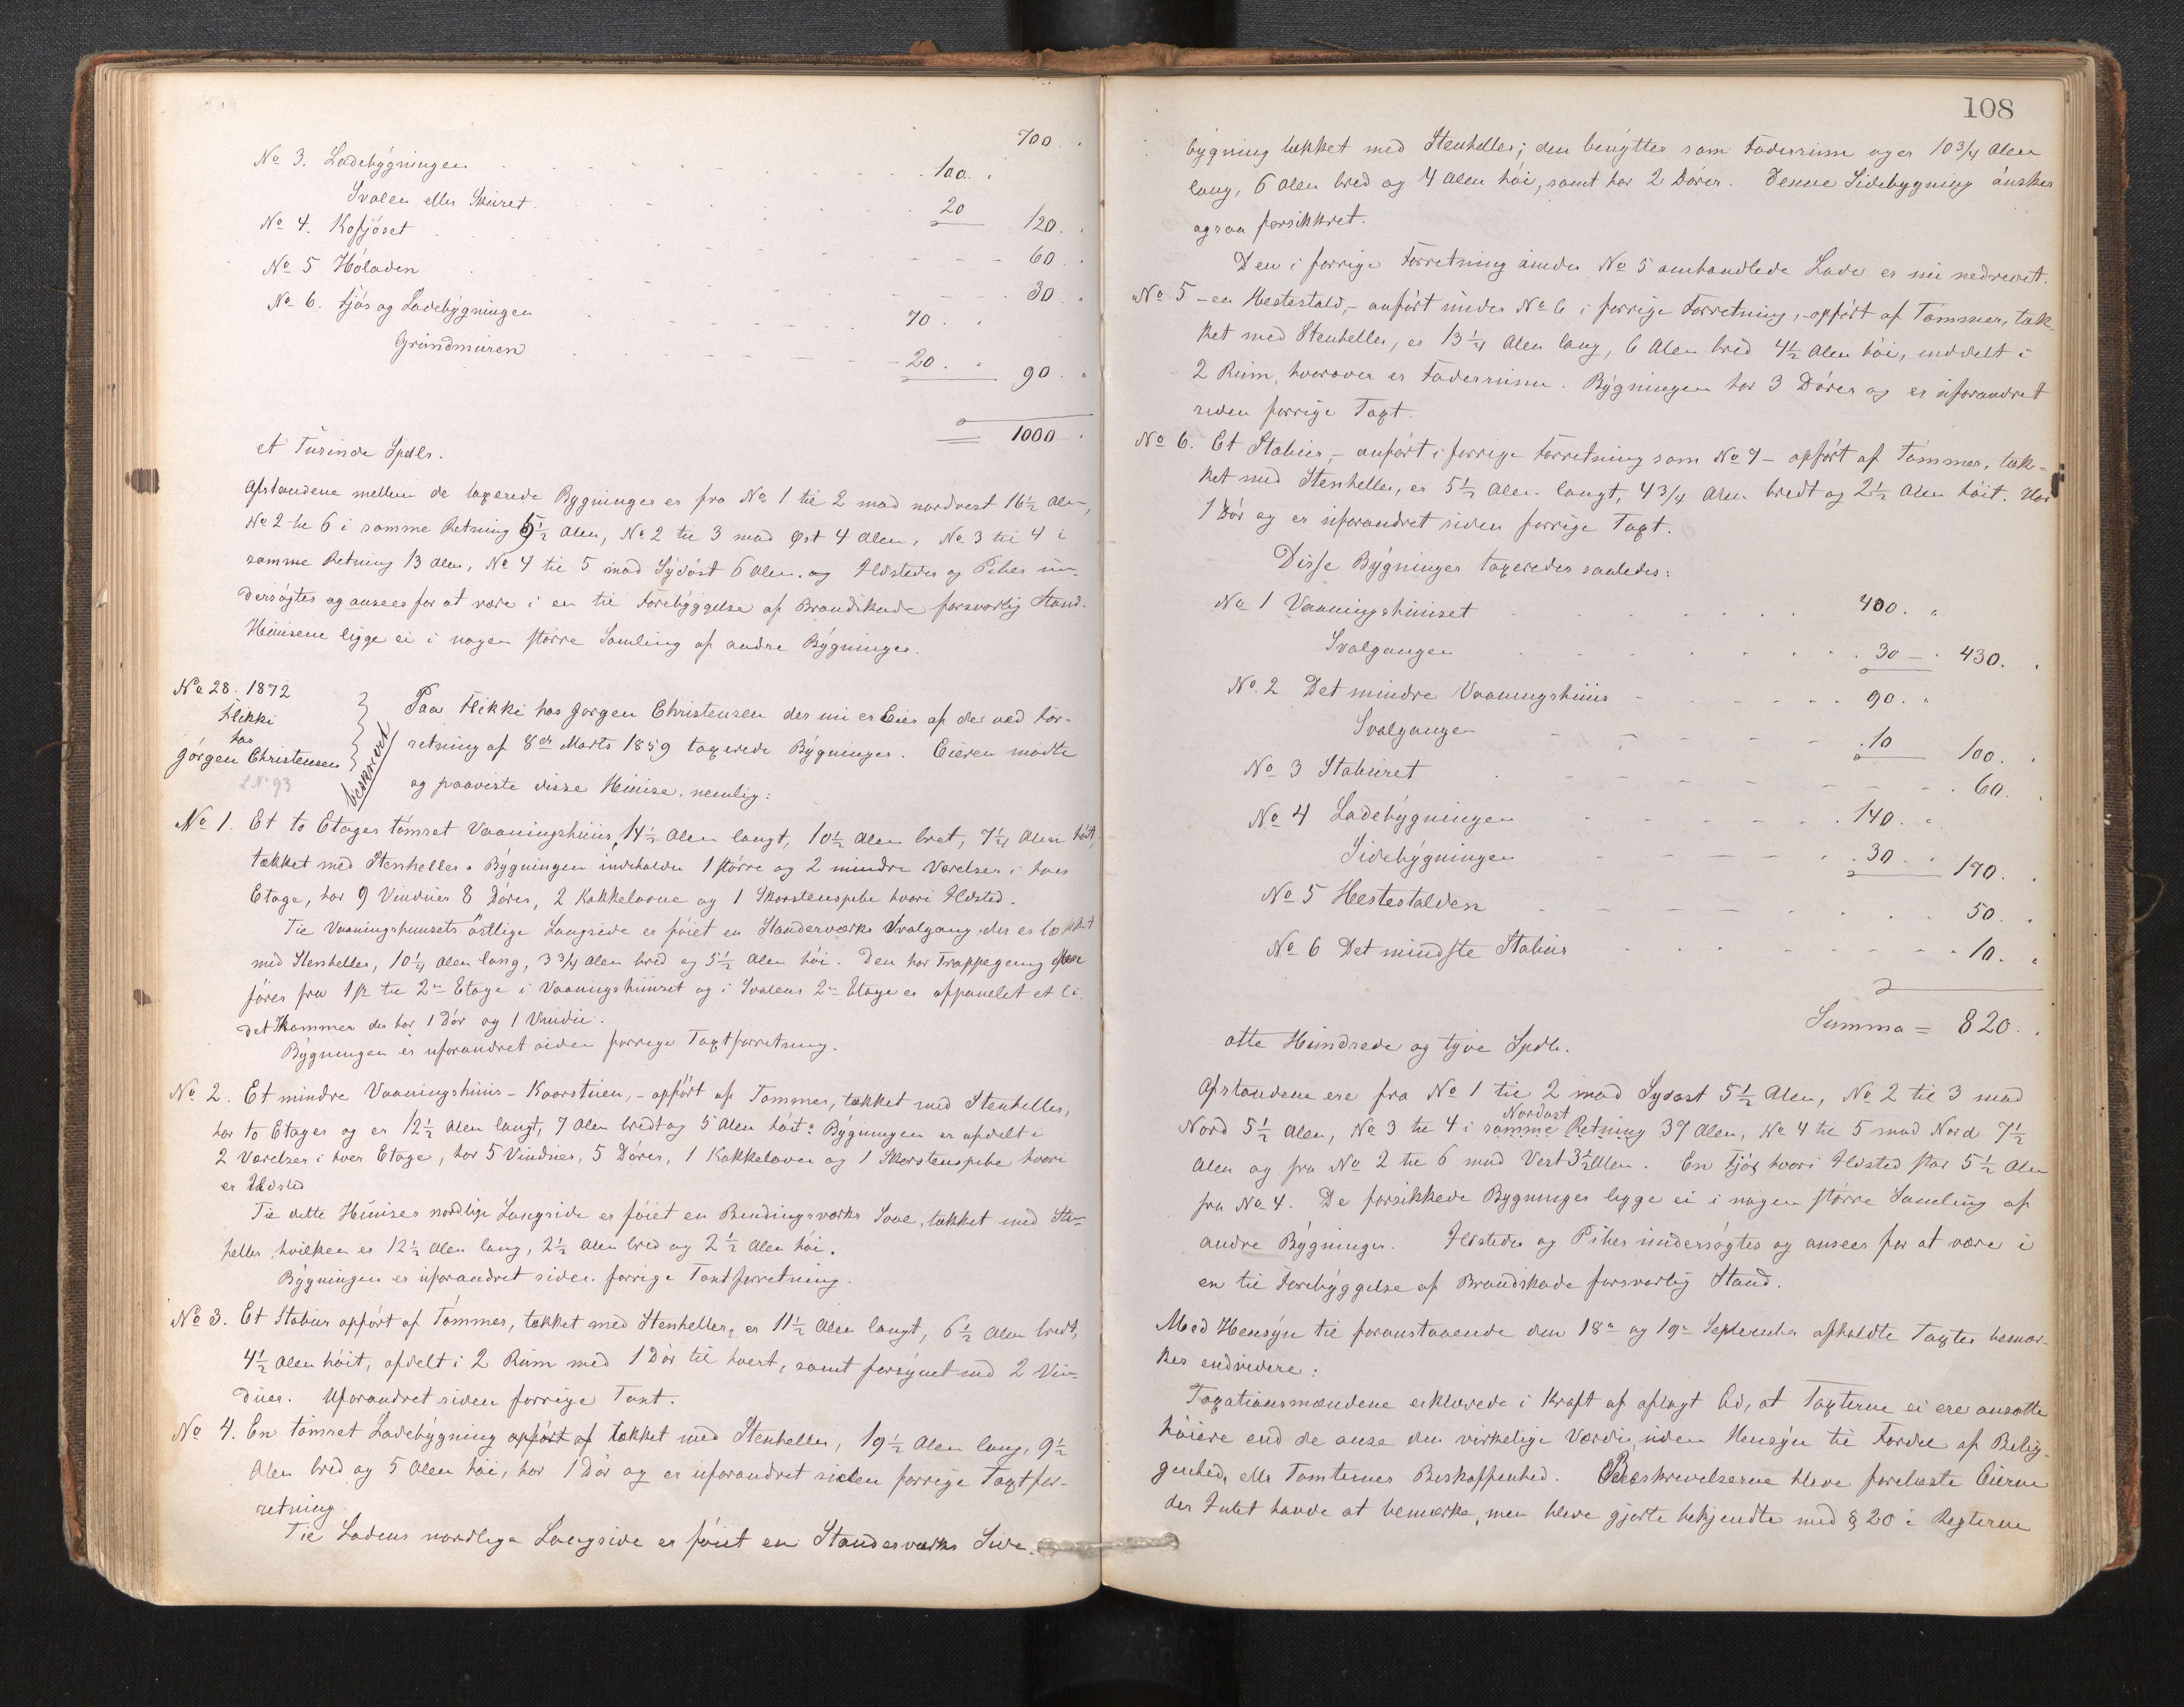 700. "
No 3. Ladebygningen 100. "
Svalen eller Skuret. 20 120. "
No 4. Kofjöset 60. "
No 5 Höladen 30. "
No 6. Fjös og Ladebygningen 70. "
Grundmuren 20. " 90. "
1000 "
et Tusinde Spdlr.
Afstandene mellem de taxerede Bygninger er fra No 1 til 2 mod nordvest 16½ Alen,
No 2 til 6 i samme Retning 5½ Alen, No 2 til 3 mod Øst 4 Alen, No 3 til 4 i
samme Retning 13 Alen, No 4 til 5 mod Sydöst 6 Alen. og Ildsteder og Piber un-
dersögtes og ansees for at være i en til Forebyggelse af Brandskade forsvarlig Stand.
Huusene ligge ei i nogen större Samling af andre Bygninger.
No 28. 1872
Flikki
hos
Jörgen Christensen
L No 93
beskrevet
Paa Flikki hos Jörgen Christensen der nu er Eier af de ved For-
retning af 8de Marts 1859 taxerede Bygninger. Eieren mödte
og paaviste disse Huuse, nemlig:
No 1. Et to Etages tömret Vaaningshuus, 14½ Alen langt, 10½ Alen bret, 7¼ Alen höit,
tækket med Stenheller. Bygningen indeholder 1 större og 2 mindre Værelser i hver
Etage, har 9 Vinduer 8 Döre, 2 Kakkelovne og 1 Skorstenspibe hvori Ildsted.
Til Vaaningshuusets östlige Langside er föiet en Standerværks Svalgang der er tækket
med Stenheller, 10¼ Alen lang, 3¾ Alen bred og 5½ Alen höi. Den har Trappegang der
förer fra 1ste til 2den Etage i Vaaningshuuset og i Svalens 2den Etage er afpanelet et li-
det Kammer der har 1 Dör og 1 Vindu.
Bygningen er uforandret siden forrige Taxtforretning.
No 2. Et mindre Vaaningshuus - Kaarstuen, - opfört af Tömmer, tækket med Stenheller,
har to Etager og er 12½ Alen langt, 7 Alen bredt og 5 Alen höit. Bygningen er afdelt i
2 Værelser i hver Etage, har 5 Vinduer, 5 Döre, 1 Kakkelovn og 1 Skorstenspibe hvori
er Ildsted
Til dette Huuses nordlige Langside er föiet en Bindingsværks Sval, tækket med Sten-
heller, hvilken er 12½ Alen lang, 2½ Alen bred og 2½ Alen höi.
Bygningen er uforandret siden forrige Taxtforretning.
No 3. Et Stabur opfört af Tömmer, tækket med Stenheller, er 11½ Alen langt, 6½ Alen bredt,
4½ Alen höit, afdelt i 2 Rum med 1 Dör til hvert, samt forsynet med 2 Vin-
duer. Uforandret siden forrige Taxt.
No 4. En tömret Ladebygning opfört af tækket med Stenheller, 19½ Alen lang, 9½
Alen bred og 5 Alen höi, har 1 Dör og er uforandret siden forrige Taxtfor-
retning.
Til Ladens nordlige Langside er föiet en Standerværks Side-
108
bygning tækket med Stenheller; den benyttes som Foderrum og er 10¾ Alen
lang, 6 Alen bred og 4 Alen höi, samt har 2 Dörer. Denne Sidebygning önskes
ogsaa forsikkret.
Den i forrige Forretning under No 5 omhandlede Lade er nu nedrevet.
No 5 - en Hestestald, - anfört under No 6 i forrige Forretning, - opfört af Tömmer, tæk-
ket med Stenheller, er 13¼ Alen lang, 6 Alen bred 4½ Alen höi, inddelt i
2 Rum, hvorover er Foderrum. Bygningen har 3 Dörer og er uforandret
siden forrige Taxt.
No 6. Et Stabur, - anfört i forrige Forretning som No 7 - opfört af Tömmer, tæk-
ket med Stenheller, er 5½ Alen langt, 4¾ Alen bredt og 2½ Alen höit. Har
1 Dör og er uforandret siden forrige Taxt.
Disse Bygninger taxeredes saaledes:
No 1 Vaaningshuuset 400. "
Svalgangen 30 - " 430. "
No 2 Det mindre Vaaningshuus 90. "
Svalgangen 10 100. "
No 3 Staburet 60. "
No 4 Ladebygningen 140. "
Sidebygningen 30. " 170. "
No 5 Hestestalden 50. "
No 6 Det mindste Stabur 10. "
Summa = 820. "
otte Hundrede og tyve Spdlr.
Afstandene ere fra No 1 til 2 mod Sydost 5½ Alen, No 2 til 3 mod
Nordost
Nord 5½ Alen, No 3 til 4 i samme Retning 37 Alen, No 4 til 5 mod Nord 7½
Alen og fra No 2 til 6 mod Vest 3½ Alen. En Fjös hvori Ildsted staar 5½ Alen
fra No 4. De forsikkrede Bygninger ligge ei i nogen större Samling af
andre Bygninger. Ildsteder og Piber undersögtes og ansees for at være i
en til Forebyggelse af Brandskade forsvarlig Stand.
Med Hensyn til foranstaaende den 18de og 19de September afholdte Taxter bemær-
kes endvidere:
Taxationsmændene erklærede i Kraft af aflagt Ed, at Taxterne ei ere ansatte
höiere end de anse den virkelige Værdi, uden Hensyn til Fordel af Belig-
genhed, eller Tomternes Beskaffenhed. Beskrivelserne bleve forelæste Eierne
der Intet havde at bemærke, men bleve gjorte bekjendte med § 20 i Reglerne